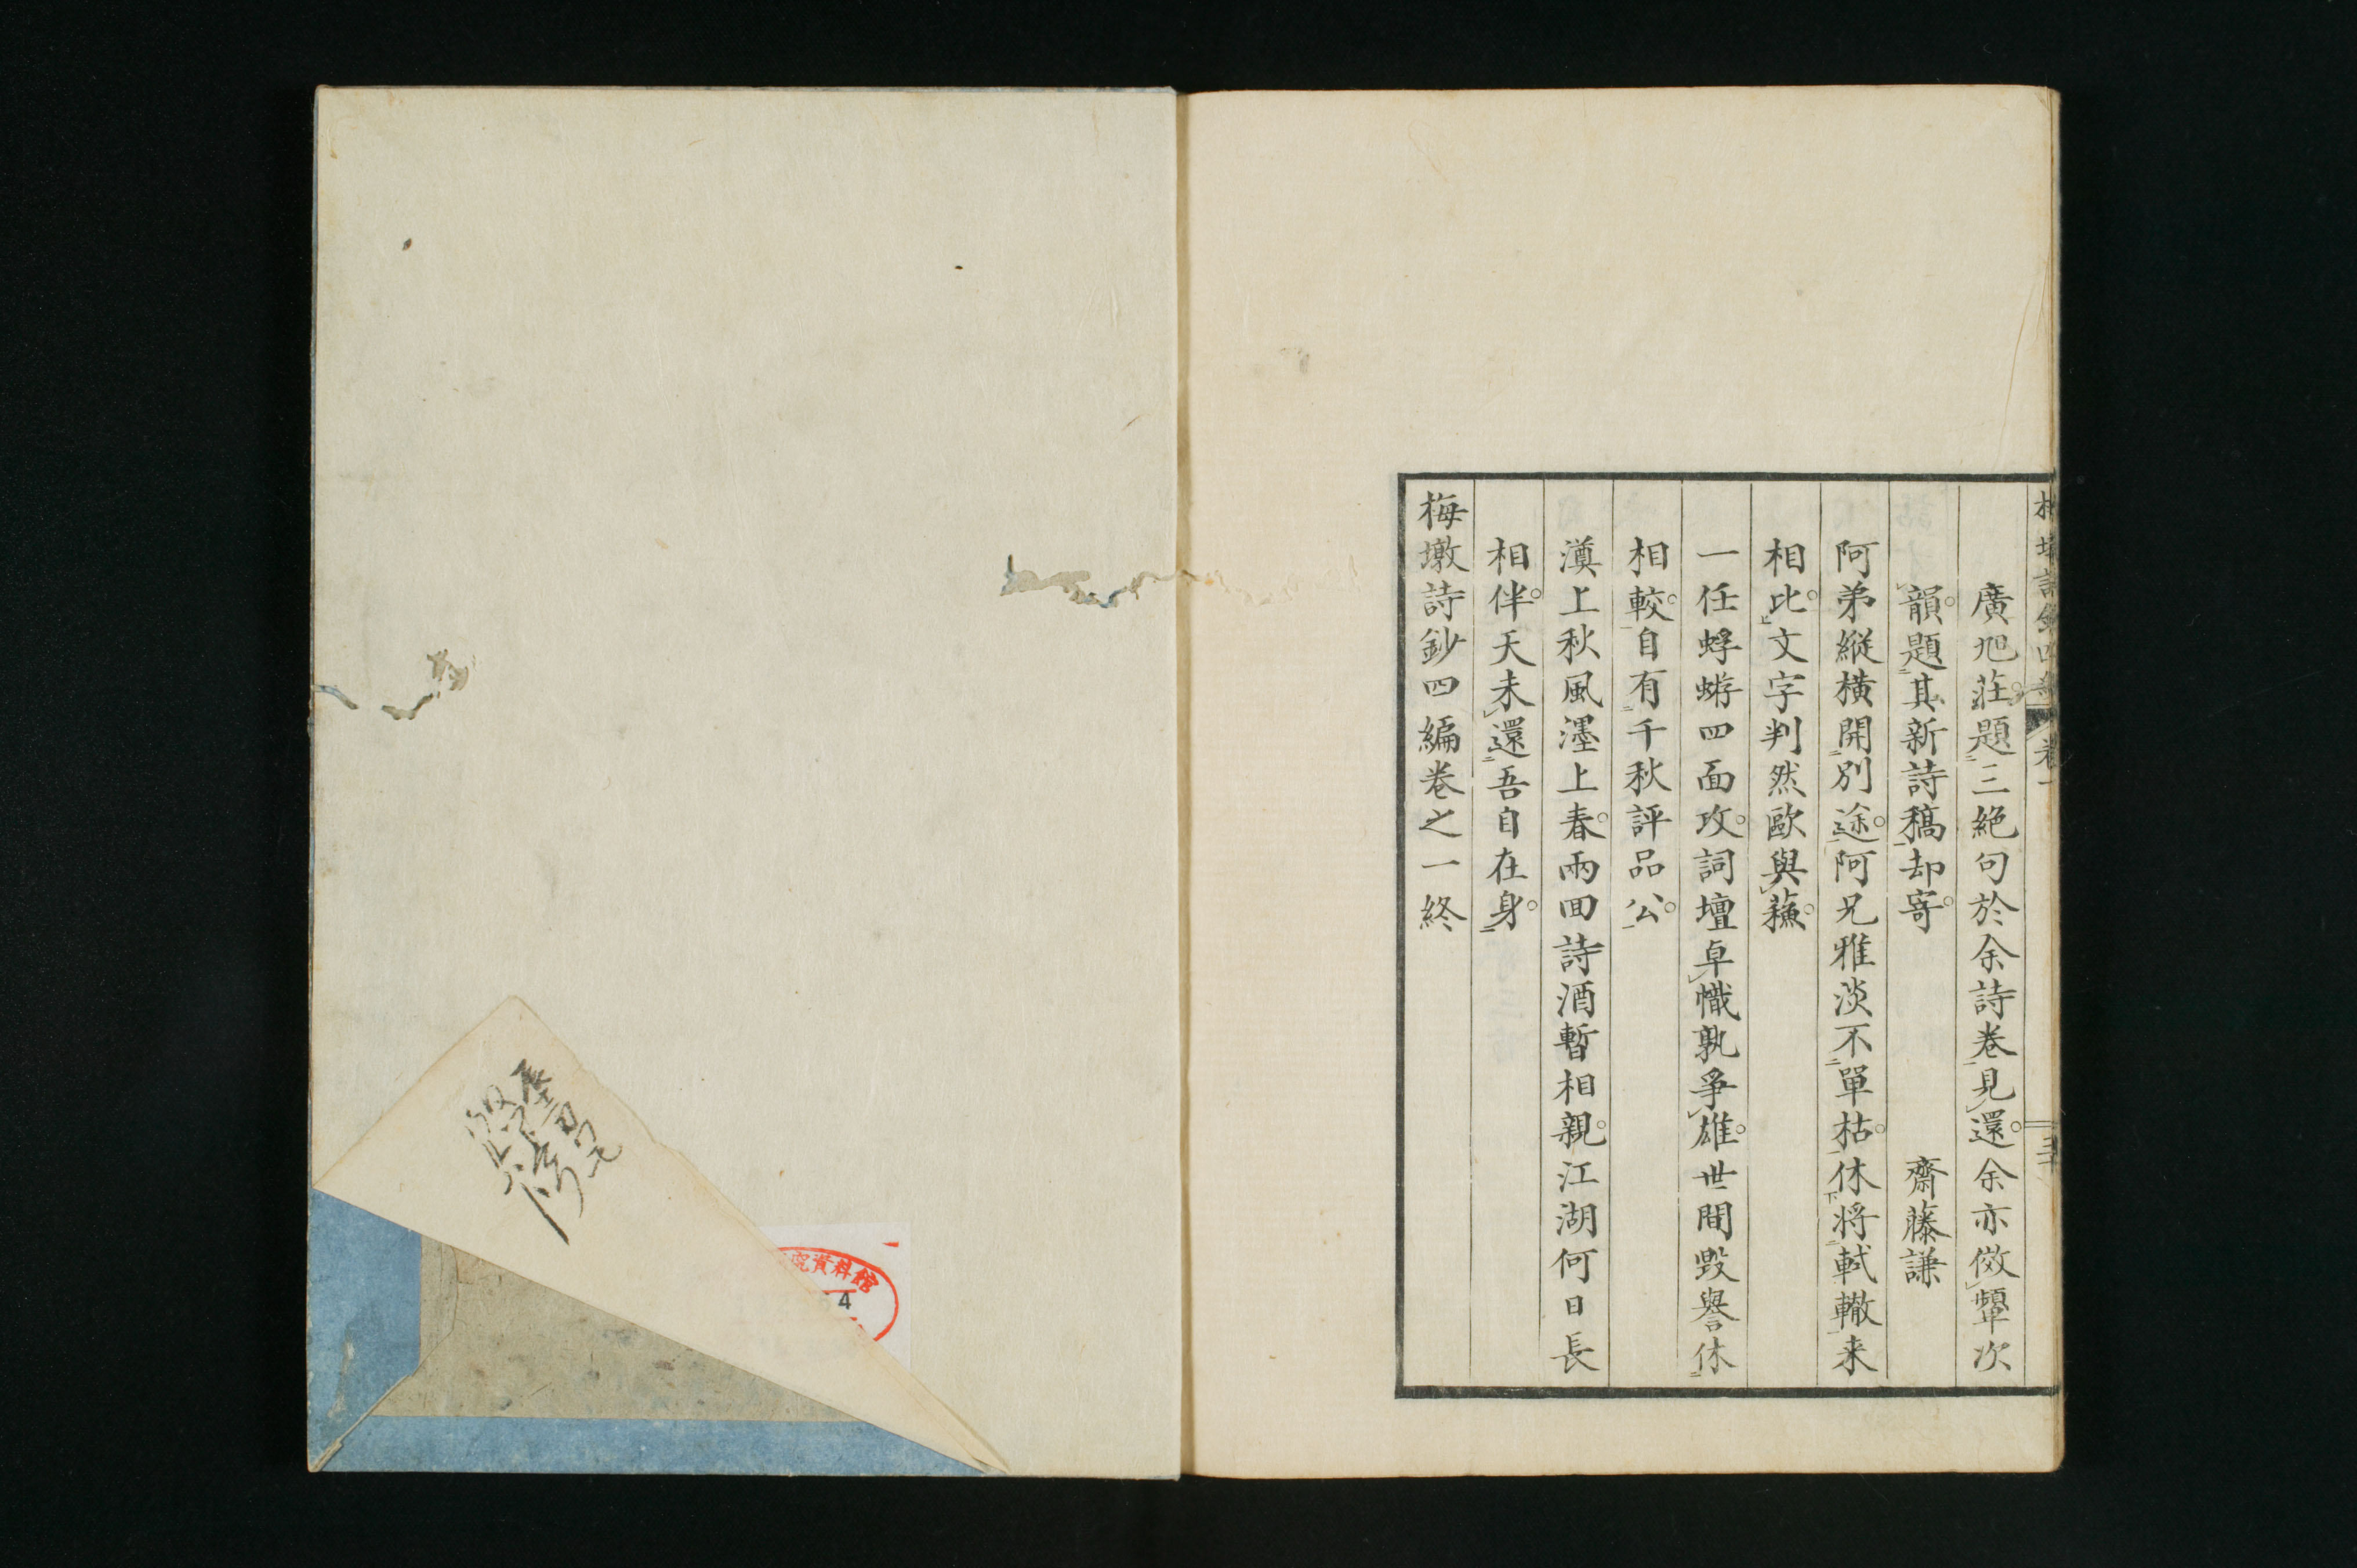 廣旭莊題三絶句於余詩卷見還余亦傚顰次
韻題其新詩稿却寄　齋藤謙
阿弟縦橫開別途阿兄雅淡不單枯休將軾轍来
相比文字判然歐與蘓
一任蜉蝣四面攻詞壇卓幟孰爭雄世間毀譽休
相較自有千秋評品公
澫上秋風濹上春兩回詩酒暫相親江湖何日長
相伴天未還吾自在身
梅墩詩鈔四編卷之一終
究資料館
4